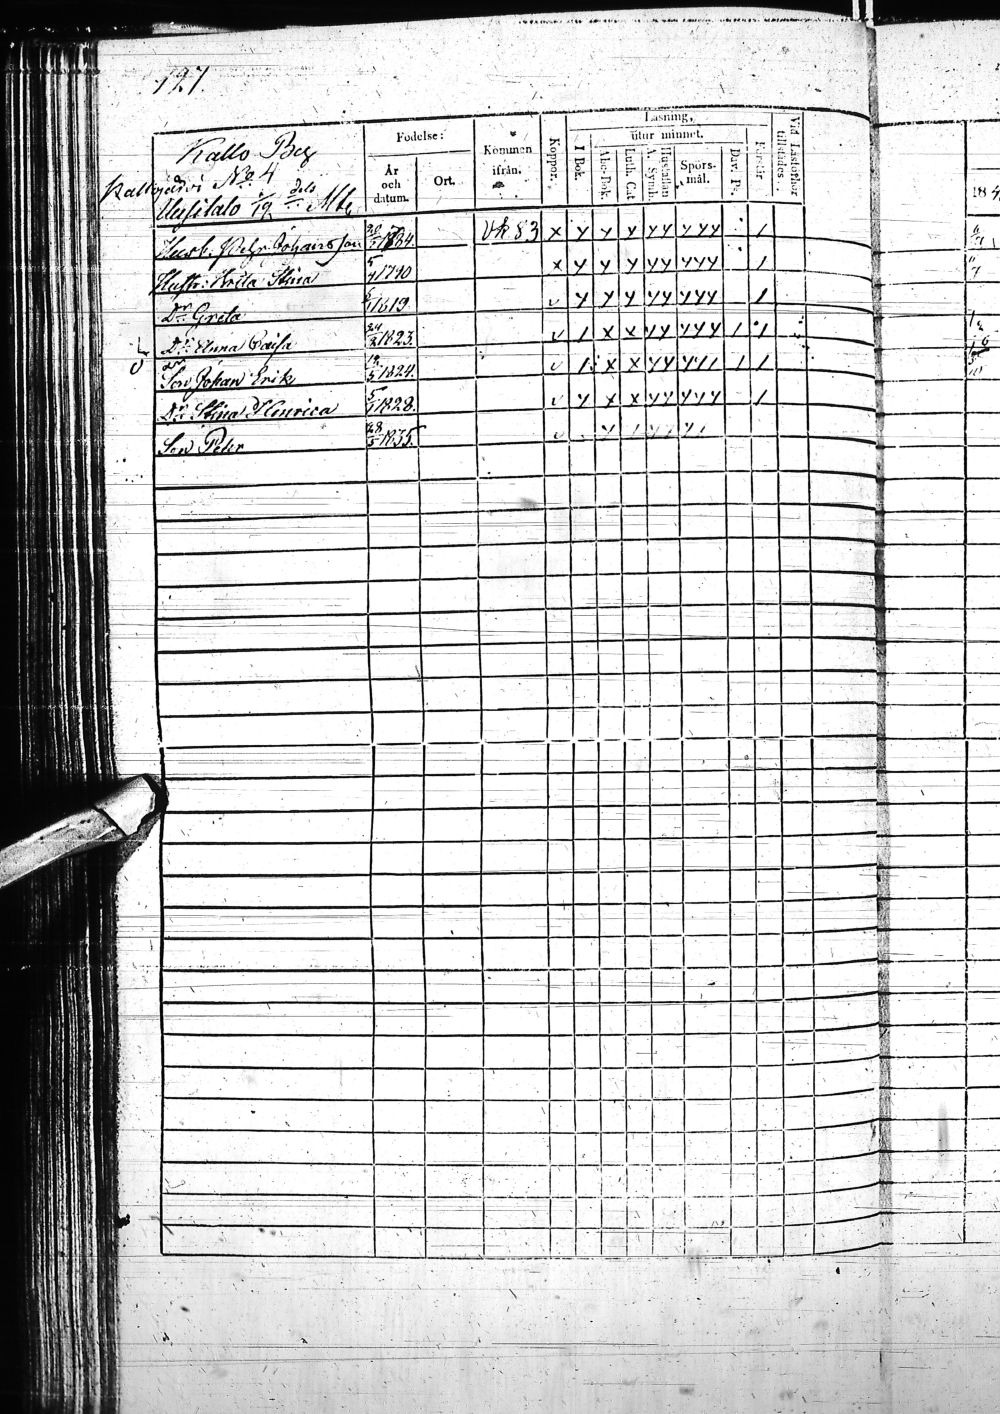 127.
Kallo By
Födelse:
Kommen ifrån.
Koppor.
Läsning,
I Bok.
utur minnet.
Abc-Bok.
Luth. Cat
A. Symb.
Hustaflan
Spörs-mål.
Dav. Ps.
Förstår.
Vid Läseförhör tillstädes.
År och datum.
Ort.
No 4
Uusitalo 1/19 dels Mtl
Husb: Pehr Johansson 20/5 1784. Vk 83 x y y y yy yyy 1
Hustr: Brita Stina 5/4 1790 x y y y yy yyy 1
Dr Greta 1819. v y y y yy yyy 1
Dr Anna Caisa 24/2 1823. v 1 x x yy yyy 1 1
Son Johan Erik 12/5 1824. v 1 x x yy yy1 1 1
Dr Stina Henrica 5/1 1828. v y x x yy yyy 1
Son Peter 28/5 1835.
184